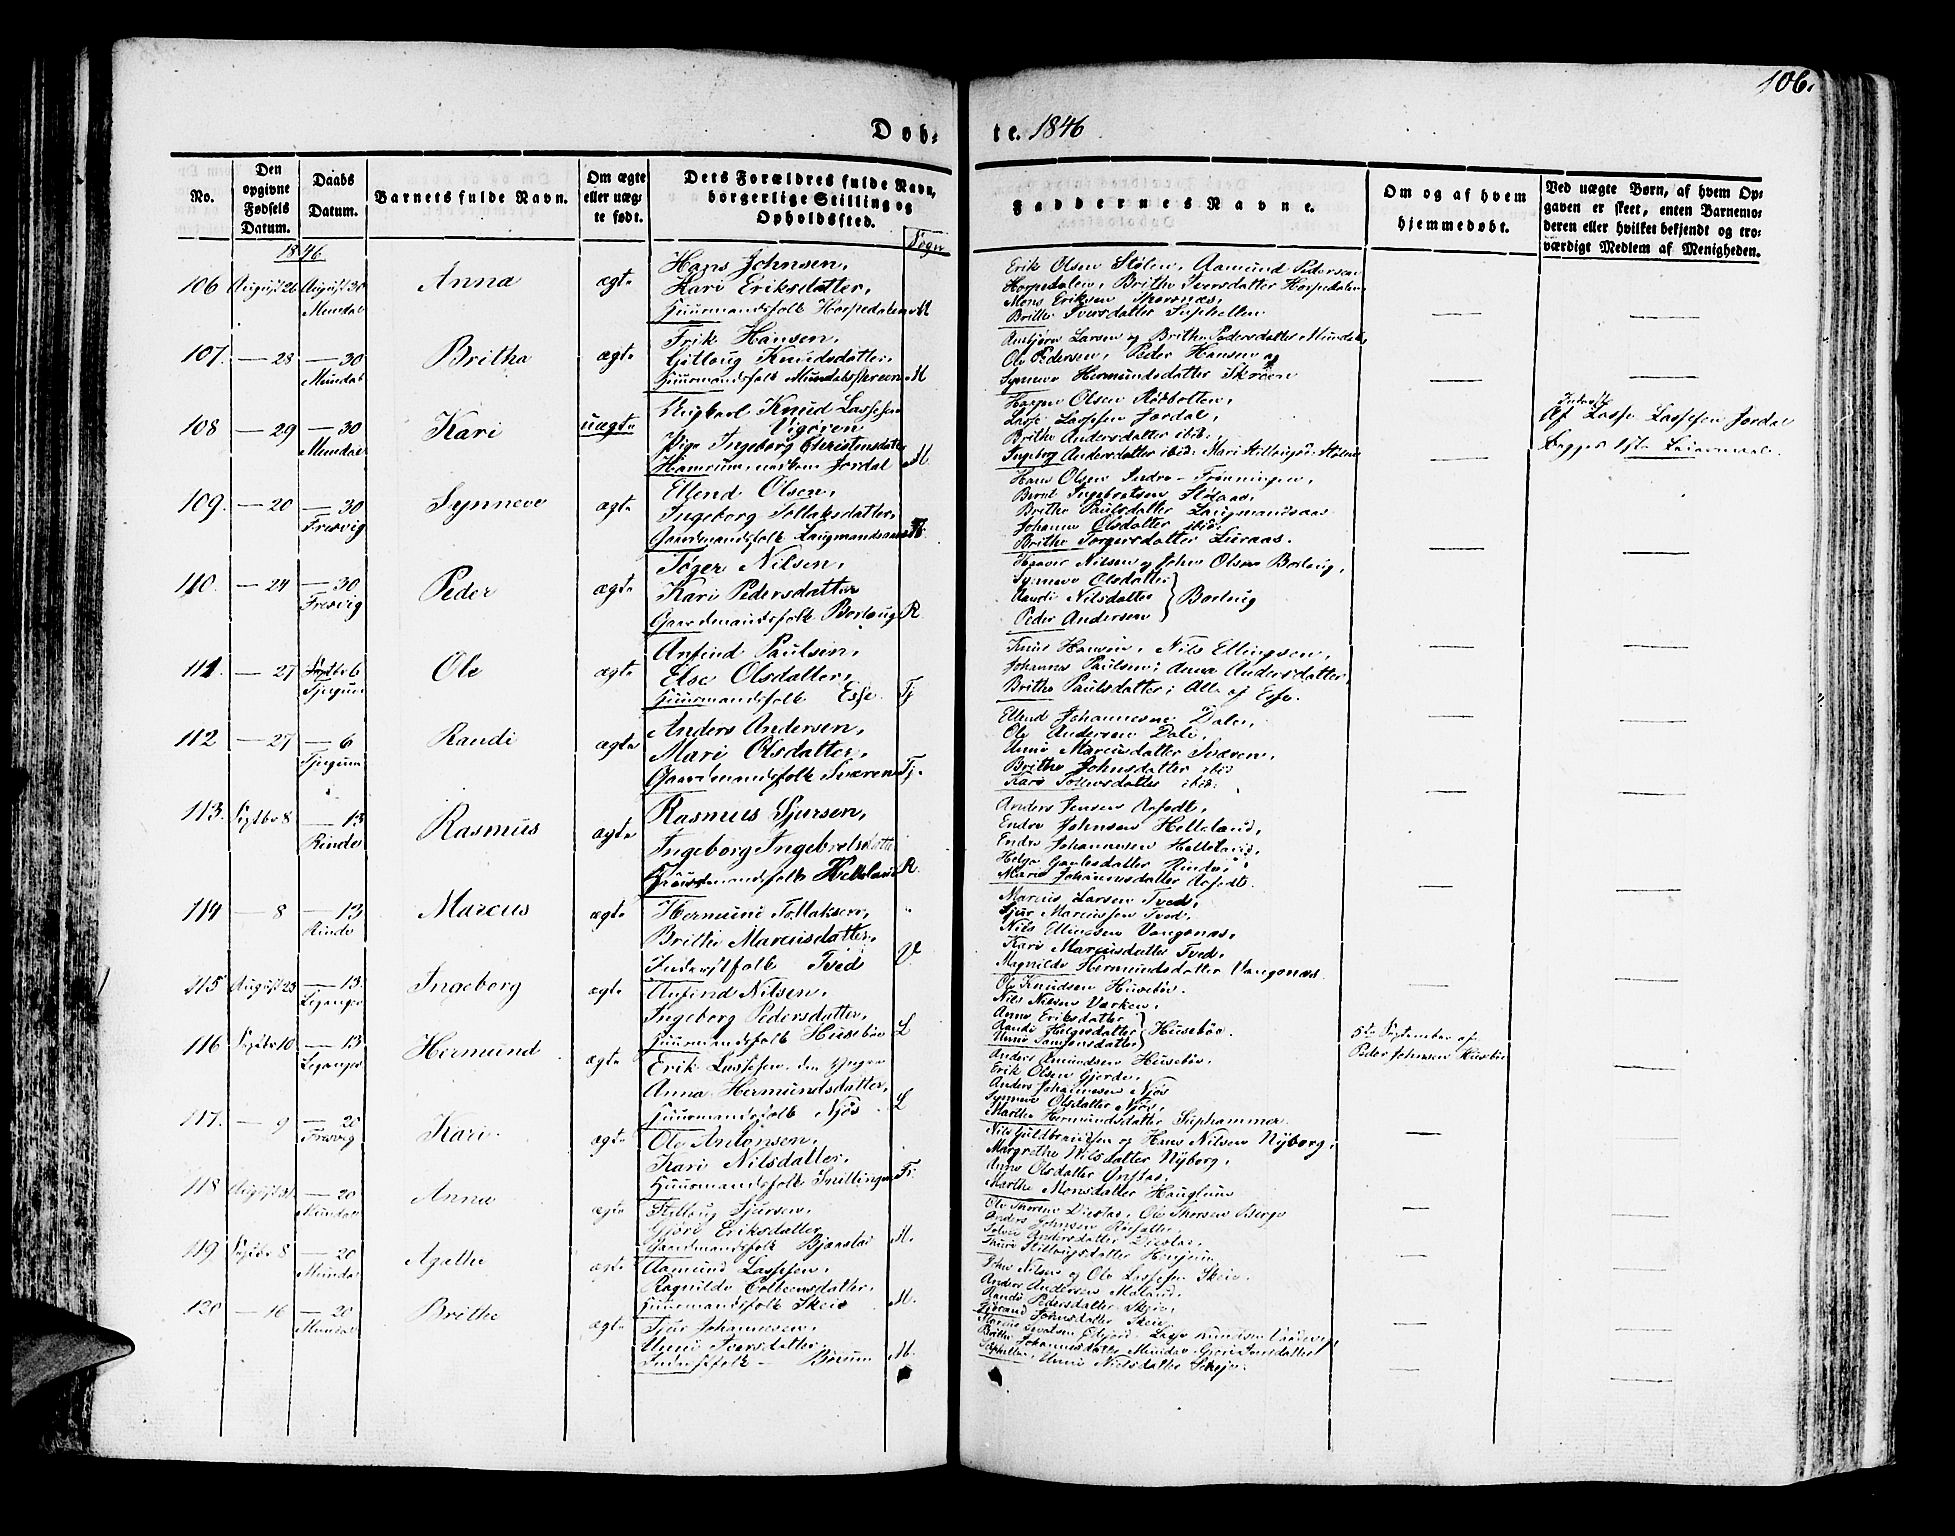 106.
Døb- te. 1846
No.
Den opgivne Fødsels Datum.
Daabs Datum.
Barnets fulde Navn.
Om ægte eller uægte født.
Dets Forældres fulde Navn, borgerlige Stilling og Opholdsted.
Sogn
Faddernes Navne.
Om og af hvem hjemmedøbt.
Ved uægte Børn, af hvem Opgaven er skeet, enten Barnemoderen eller hvilket bekjendt og troværdigt Medlem af Menigheden.
1846
106 August 26 August 30 Mundal Anna ægte
Hans Johnsen,
Kari Eriksdatter,
Huusmandsfolk Horpedalen M
Erik Olsen Stølen, Aamund Pedersen
Horpedalen, Brithe Iversdatter Horpedalen,
Mons Eriksen Thorsnæs,
Brithe Iversdatter Suphellen
107. — 28 — 30 Mundal Britha ægte
Erik Hansen,
Gitloug Knudsdatter,
Huusmandsfolk Mundalsskreen M
Ambjørn Larsen og Brithe Pedersdatter Mundal,
Ole Pedersen, Peder Hansen og
Synneve Hermundsdatter Skreen
108 — 29 — 30 Mundal Kari uægte
Ungkarl Knud Lassesen
Vigøren
Pige Ingeborg Christensdatter
Hamrum, Jordal M
Olsen Rødbotten,
Lasse Lassesen Jordal,
Brithe Andersdatter ibid:
Ingeborg Andersdatter ibid: Mari Stølen
Inderst
Af Lasse Lassesen Jordal
Begges 1ste Leiermaal.
109. — 20 — 30 Fresvig Synneve ægte
Ellend Olsen,
Ingeborg Tollaksdatter,
Gaardmandsfolk Laugmandsaas
Hans Olsen Indre-Frønningen,
Bernt Ingebretsen Stølaas,
Brithe Paulsdatter Laugmandsaas
Johanna Olsdatter ibid:
Brithe Torgersdatter Luraas.
110. — 24 — 30 Fresvig Peder ægte
Tøger Nilsen,
Kari Pedersdatter
Gaardmandsfolk Borlaug R
Nilsen og John Olsen Borlaug,
Synneve Olsdatter
Randi Nilsdatter Borlaug
Peder Andersen
111. — 27 Septbr 6 Tjugum Ole ægte
Anfind Paulsen,
Else Olsdatter,
Huusmandsfolk Esse Tj
Knud Hansen, Nils Ellingsen,
Johannes Paulsen, Anna Andersdatter,
Brithe Paulsdatter; Alle af Esse.
112 — 27 — 6 Tjugum Randi ægte
Anders Andersen,
Mari Olsdatter,
Gaardmandsfolk Sværen Tj.
Ellend Johannesen Dalen,
Ole Andersen Dale,
Unni Marcusdatter Sværen,
Brithe Johnsdatter ibid
Kari Tollevsdatter ibid:
113. Septbr 8 — 13 Rinde Rasmus ægte
Rasmus Sjursen,
Ingeborg Ingebretsdatter
Huusmandsfolk Helleland R
Anders Jensen Aafedt,
Endre Johnsen Helleland,
Endre Johannesen Helleland,
Helga Gautesdatter Rinde,
Mari Johannesdatter Aafedt.
114 — 8 — 13 Rinde Marcus ægte
Hermund Tollaksen,
Brithe Marcusdatter,
Inderstfolk Tved V
Marcus Larsen Tved,
Sjur Marcussen Tved,
Nils Ellingsen Vangsnæs,
Kari Marcusdatter Tved,
Magnilde Hermundsdatter Vangsnæs
115 August 23 — 13 Leganger Ingeborg ægte
Anfind Nilsen,
Ingeborg Pedersdatter,
Huusmandsfolk Husebøe L
Ole Knudsen Husebøe.
Nils Nilsen Værken,
Anna Eriksdatter
Randi Helgesdatter Husebøe.
Unni Samsonsdatter
116 Septbr 10 — 13 Leganger Hermund ægte
Erik Lassesen den Yngre
Anna Hermundsdatter,
Huusmandsfolk Njøs L
Anders Amundsen Husebøe,
Erik Olsen Gjerde,
Anders Johannesen Njøs
Synneve Olsdatter Njøs,
Marthe Hermundsdatter Suphammer.
5te September af
Peder Johnsen Husebøe
117. — 9 — 20 Fresvig Kari ægte
Ole Antonsen,
Kari Nilsdatter,
Huusmandsfolk Snillingen Fr.
Nils Guldbrandsen og Hans Nilsen Nyborg,
Margrethe Nilsdatter Nyborg,
Anna Olsdatter
Marthe Monsdatter Hauglum
118 August 31 — 20 Mundal Anna ægte
Stilloug Sjursen,
Gjøri Eriksdatter
Gaardmandsfolk Bjaastad M.
Ole Thorsen Diestae, Ole Thorsen Berge
Anders Johnsen
Andersdatter Diestae,
Stillougsdatter
119 Septbr 8 — 20 Mundal Agathe ægte
Aamund Lassesen,
Ragnilde Colbensdatter,
Huusmandsfolk Skeie M.
John Nilsen og Ole Lassesen Skeie,
Anders Andersen Moland,
Randi Pedersdatter Skeie,
Johnsdatter Skeie
120 — 16 — 20 Mundal Brithe ægte
Tjør Johannesen,
Unni Iversdatter,
Inderstfolk — Børum M.
Brithe Johannesdatter Mundal,
Unni Nilsdatter